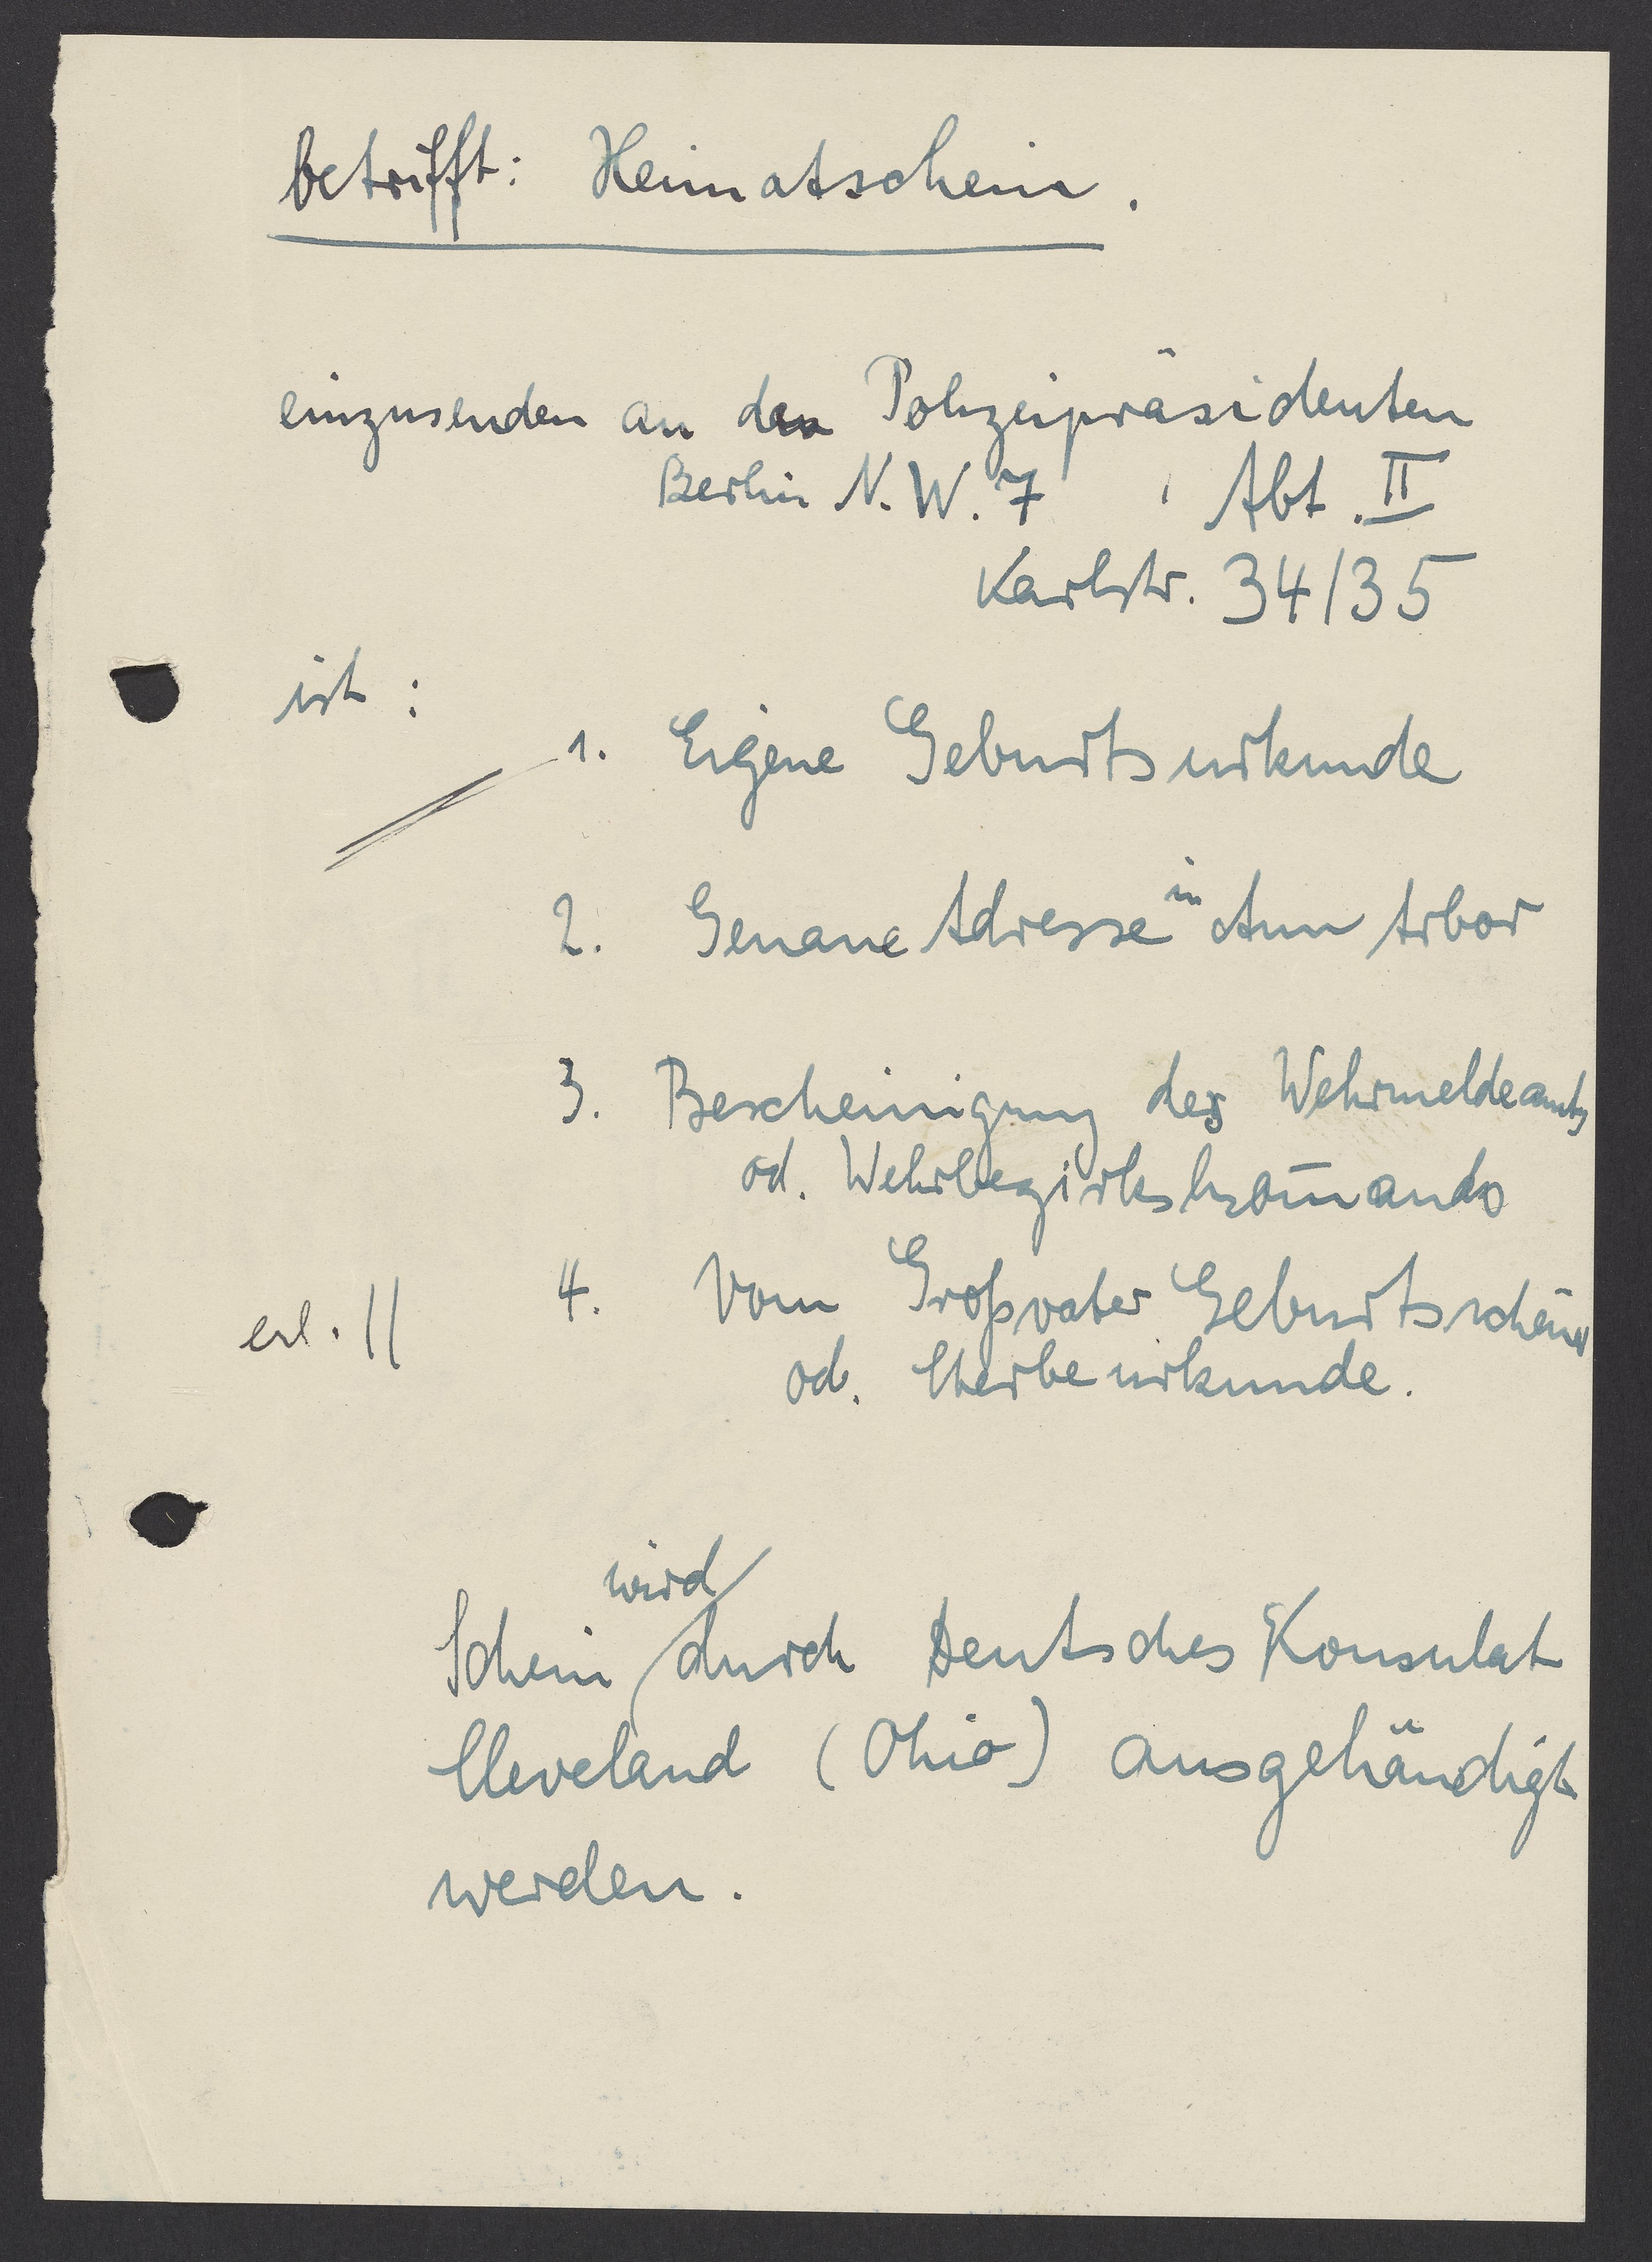 betrifft: Heimatschein.
einzusenden an den Polizeipräsidenten
Berlin N.W. 7, Abt. II
Karlstr. 34/35
ist:
1. Eigene Geburtsurkunde
2. Genaue Adresse in Ann Arbor
3. Bescheinigung des Wehrmeldeamts
od. Wehrbezirkskom̄ando
erl. || 4. Vom Großvater Geburtsschein
od. Sterbeurkunde.
Schein wird durch Deutsches Konsulat
Cleveland (Ohio) ausgehändigt
werden.